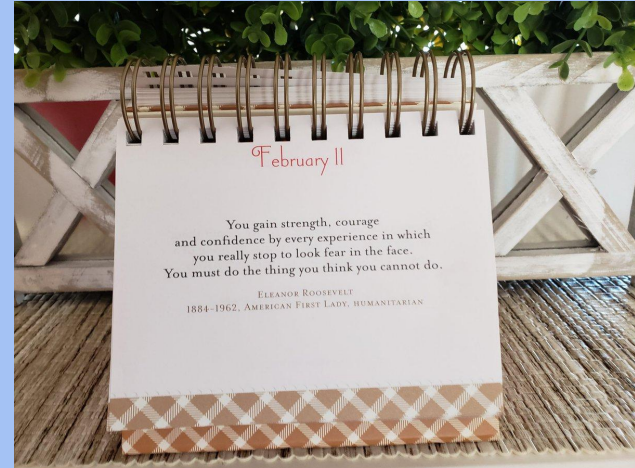 February 11
You gain strength, courage
and confidence by every experience in which
you really stop to look fear in the face.
You must do the thing you think you cannot do.
Eleanor Roosevelt
1884–1962, American First Lady, humanitarian